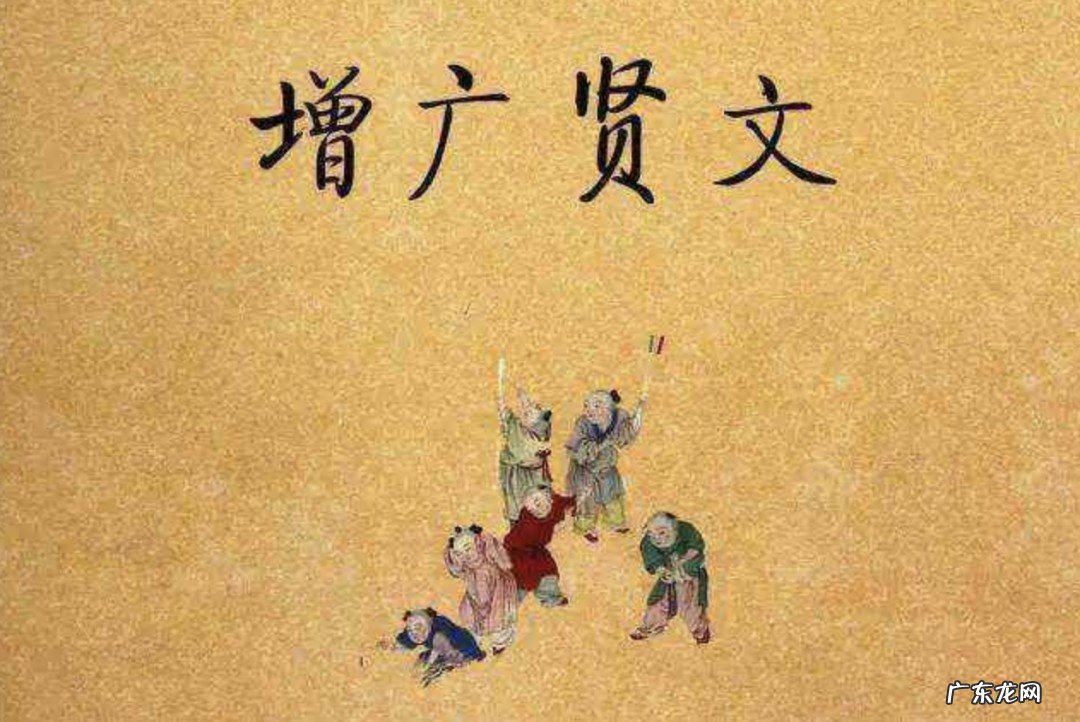 增广贤文
广东龙网